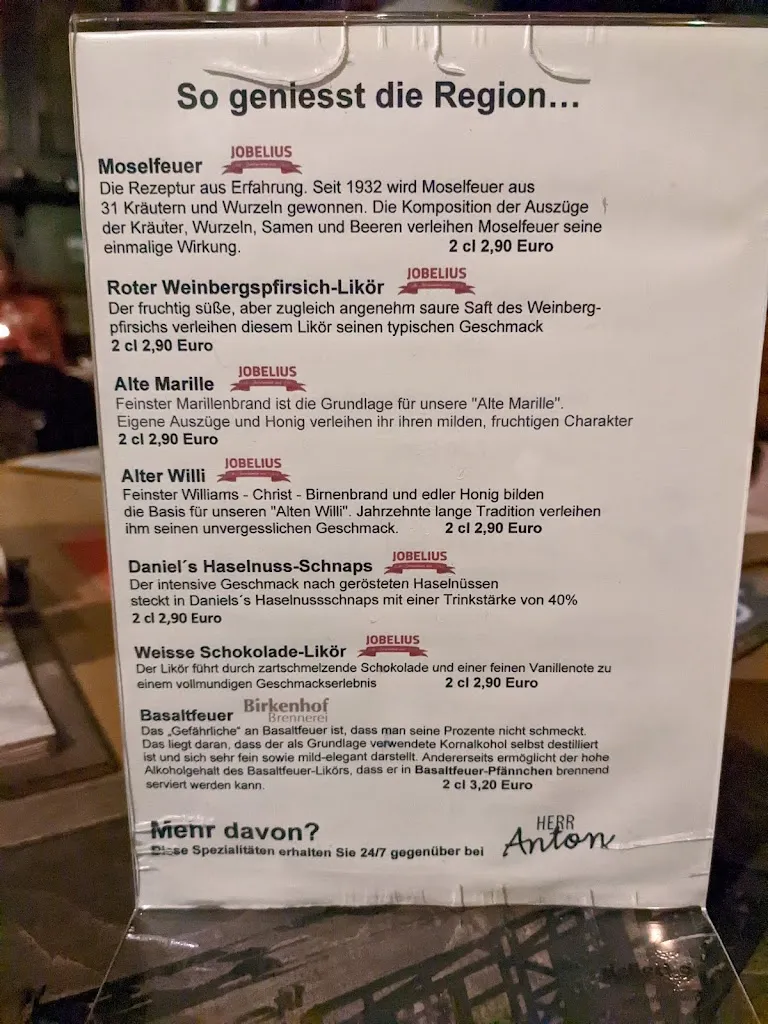 So geniesst die Region...
Moselfeuer JOBELIUS
Die Rezeptur aus Erfahrung. Seit 1932 wird Moselfeuer aus
31 Kräutern und Wurzeln gewonnen. Die Komposition der Auszüge
der Kräuter, Wurzeln, Samen und Beeren verleihen Moselfeuer seine
einmalige Wirkung. 2 cl 2,90 Euro
Roter Weinbergspfirsich-Likör JOBELIUS
Der fruchtig süße, aber zugleich angenehm saure Saft des Weinberg-
pfirsichs verleihen diesem Likör seinen typischen Geschmack
2 cl 2,90 Euro
Alte Marille JOBELIUS
Feinster Marillenbrand ist die Grundlage für unsere "Alte Marille".
Eigene Auszüge und Honig verleihen ihr ihren milden, fruchtigen Charakter
2 cl 2,90 Euro
Alter Willi JOBELIUS
Feinster Williams - Christ - Birnenbrand und edler Honig bilden
die Basis für unseren "Alten Willi". Jahrzehnte lange Tradition verleihen
ihm seinen unvergesslichen Geschmack. 2 cl 2,90 Euro
Daniel´s Haselnuss-Schnaps JOBELIUS
Der intensive Geschmack nach gerösteten Haselnüssen
steckt in Daniels´s Haselnussschnaps mit einer Trinkstärke von 40%
2 cl 2,90 Euro
Weisse Schokolade-Likör JOBELIUS
Der Likör führt durch zartschmelzende Schokolade und einer feinen Vanillenote zu
einem vollmundigen Geschmackserlebnis 2 cl 2,90 Euro
Basaltfeuer Birkenhof
Brennerei
Das „Gefährliche“ an Basaltfeuer ist, dass man seine Prozente nicht schmeckt.
Das liegt daran, dass der als Grundlage verwendete Kornalkohol selbst destilliert
ist und sich sehr fein sowie mild-elegant darstellt. Andererseits ermöglicht der hohe
Alkoholgehalt des Basaltfeuer-Likörs, dass er in Basaltfeuer-Pfännchen brennend
serviert werden kann. 2 cl 3,20 Euro
Mehr davon?
Diese Spezialitäten erhalten Sie 24/7 gegenüber bei
HERR
Anton